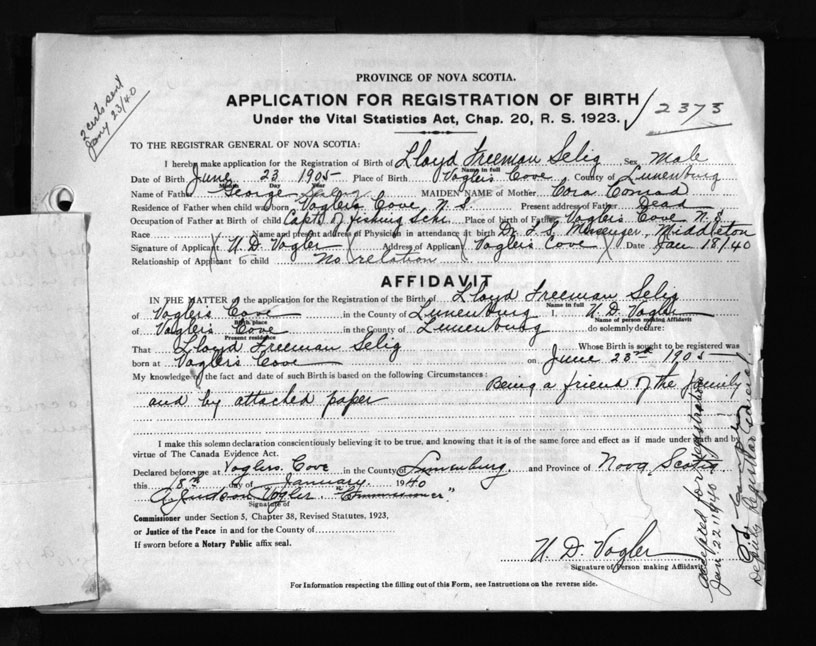 2 certs sent
Jany 23/40
PROVINCE OF NOVA SCOTIA.
APPLICATION FOR REGISTRATION OF BIRTH
2373
Under the Vital Statistics Act, Chap. 20, R. S. 1923.
TO THE REGISTRAR GENERAL OF NOVA SCOTIA:
I hereby make application for the Registration of Birth of Lloyd Freeman Selig Sex Male
Name in full
Date of Birth June 23 1905 Place of Birth Voglers Cove County of Lunenburg
Month Day Year
Name of Father George Selig MAIDEN NAME of Mother Cora Conrad
Residence of Father when child was born Voglers Cove N.S. Present address of Father Dead
Occupation of Father at Birth of child Capt. of fishing Schr. Place of birth of Father Voglers Cove N.S
Race Name and present address of Physician in attendance at birth Dr. L.S. Messenger, Middleton
Signature of Applicant U. D. Vogler Address of Applicant Voglers Cove Date Jan 18/40
Relationship of Applicant to child No relation
AFFIDAVIT
IN THE MATTER of the application for the Registration of the Birth of Lloyd Freeman Selig
Name in full
of Voglers Cove in the County of Lunenburg I, U. D. Vogler
Birth place Name of person making Affidavit
of Voglers Cove in the County of Lunenburg do solemnly declare:
Present residence
That Lloyd Freeman Selig Whose Birth is sought to be registered was
born at Voglers Cove on June 23rd 1905
My knowledge of the fact and date of such Birth is based on the following Circumstances: Being a friend of the family
and by attached paper
I make this solemn declaration conscientiously believing it to be true, and knowing that it is of the same force and effect as if made under oath and by
virtue of The Canada Evidence Act.
Declared before me at Voglers Cove in the County of Lunenburg and Province of Nova Scotia
this 18th day of January 1940
Judson Vogler "Commissioner"
Signature of
Commissioner under Section 5, Chapter 38, Revised Statutes, 1923,
or Justice of the Peace in and for the County of
If sworn before a Notary Public affix seal.
U. D. Vogler
Signature of Person making Affidavit
For Information respecting the filling out of this Form, see Instructions on the reverse side.
Accepted for registration
Jan 22, 1940
Deputy Registrar General